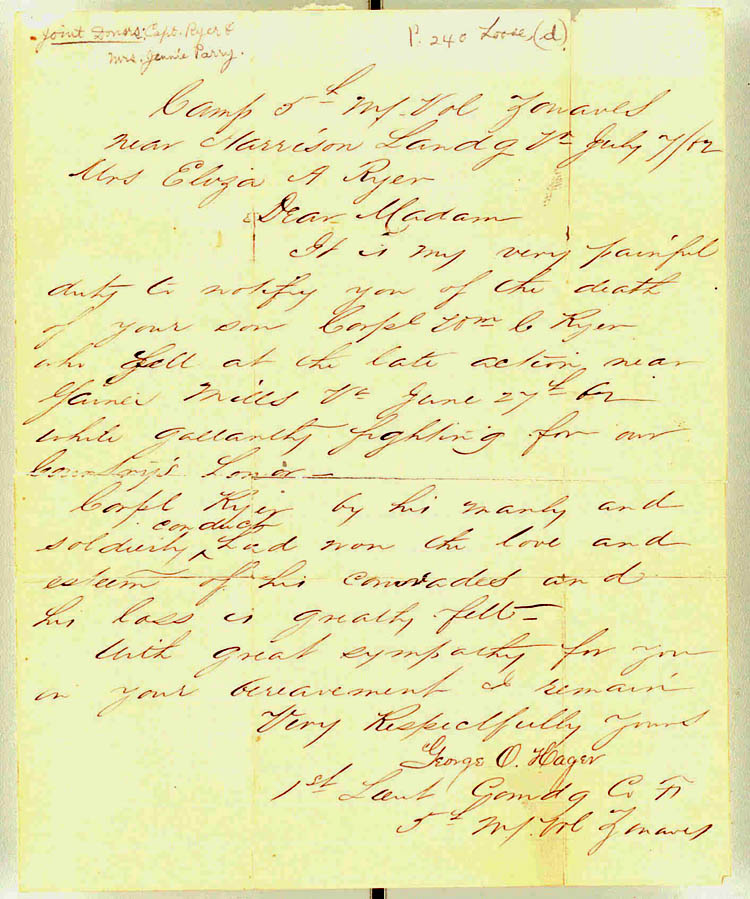 Joint Donors: Capt. Ryer &
Mrs. Jennie Parry.
P. 240 Loose (d)
Camp 5th NY Vol Zouaves
near Harrison Landg Va July 7/62
Mrs Eliza A Ryer
Dear Madam
It is my very painful
duty to notify you of the death
of your son Corpl Wm C Ryer
who fell at the late action near
Gaines Mills Va June 27th 62
while gallantly fighting for our
Country's honor—
Corpl Ryer by his manly and
soldierly conduct had won the love and
esteem of his comrades and
his loss is greatly felt—
With great sympathy for you
in your bereavement I remain
Very Respectfully Yours
George O. Hager
1st Lieut Comdg Co F
5th NY Vol Zouaves